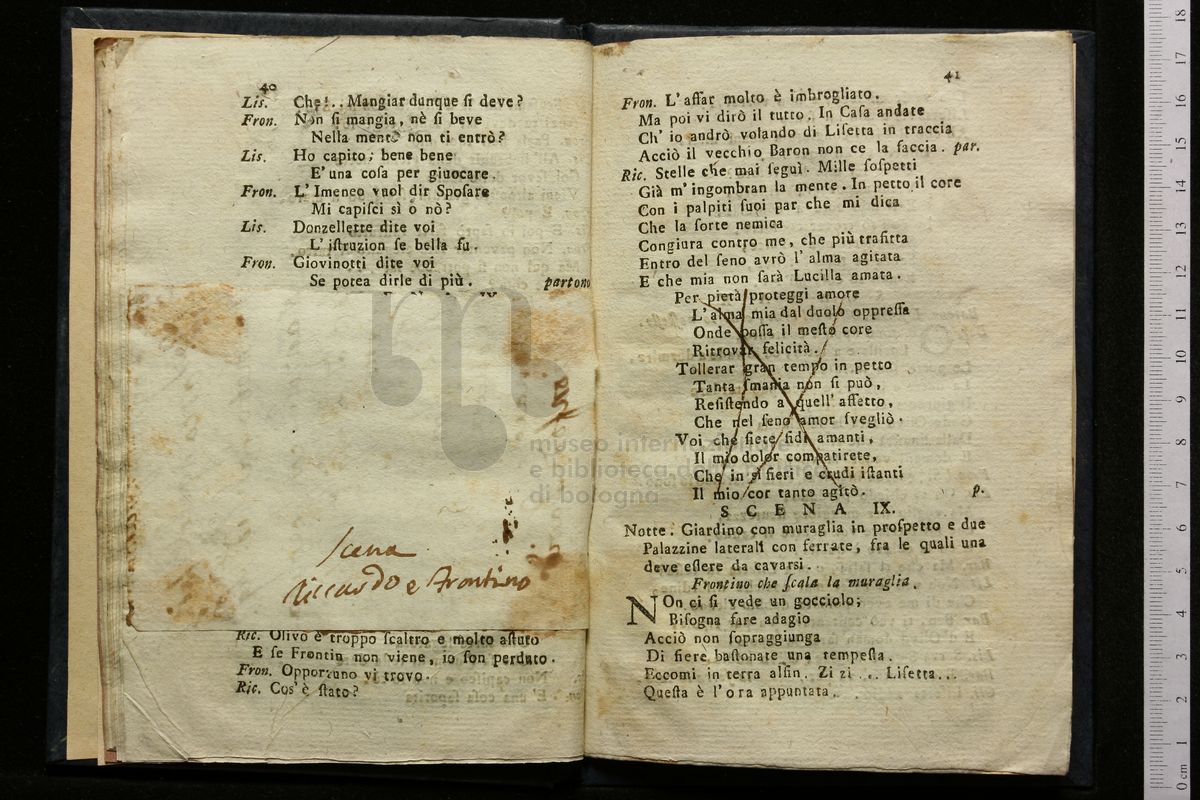 40
Lis. Che!.. Mangiar dunque ſi deve?
Fron. Non ſi mangia, nè ſi beve
Nella mente non ti entrò?
Lis. Ho capito; bene bene
E' una coſa per giuocare.
Fron. L' Imeneo vuol dir Spoſare
Mi capiſci sì o nò?
Lis. Donzellette dite voi
L' iſtruzion ſe bella fu.
Fron. Giovinotti dite voi
Se potea dirle di più. partono
Scena
Riccardo e Frontino
Ric. Olivo è troppo ſcaltro e molto aſtuto
E ſe Frontin non viene, io ſon perduto.
Fron. Opportuno vi trovo.
Ric. Cos' è ſtato?
41
Fron. L' affar molto è imbrogliato.
Ma poi vi dirò il tutto. In Caſa andate
Ch' io andrò volando di Liſetta in traccia
Acciò il vecchio Baron non ce la faccia. par.
Ric. Stelle che mai ſeguì. Mille ſoſpetti
Già m' ingombran la mente. In petto il core
Con i palpiti ſuoi par che mi dica
Che la ſorte nemica
Congiura contro me, che più trafitta
Entro del ſeno avrò l' alma agitata
E che mia non ſarà Lucilla amata.
Per pietà proteggi amore
L' alma mia dal duolo oppreſſa
Onde poſſa il meſto core
Ritrovar felicità.
Tollerar gran tempo in petto
Tanta ſmania non ſi può,
Reſiſtendo a quell' affetto,
Che nel ſeno amor ſvegliò.
Voi che ſiete fidi amanti,
Il mio dolor compatirete,
Che in sì fieri e crudi iſtanti
Il mio cor tanto agitò. p.
SCENA IX.
Notte. Giardino con muraglia in proſpetto e due
Palazzine laterali con ferrate, fra le quali una
deve eſſere da cavarsi.
Frontino che ſcala la muraglia.
NOn ci ſi vede un gocciolo;
Biſogna fare adagio
Acciò non ſopraggiunga
Di fiere baſtonate una tempeſta.
Eccomi in terra alfin. Zi zi ... Liſetta...
Queſta è l'ora appuntata.
museo internaz
e biblioteca d
di bologna
0 cm 1 2 3 4 5 6 7 8 9 10 11 12 13 14 15 16 17 18